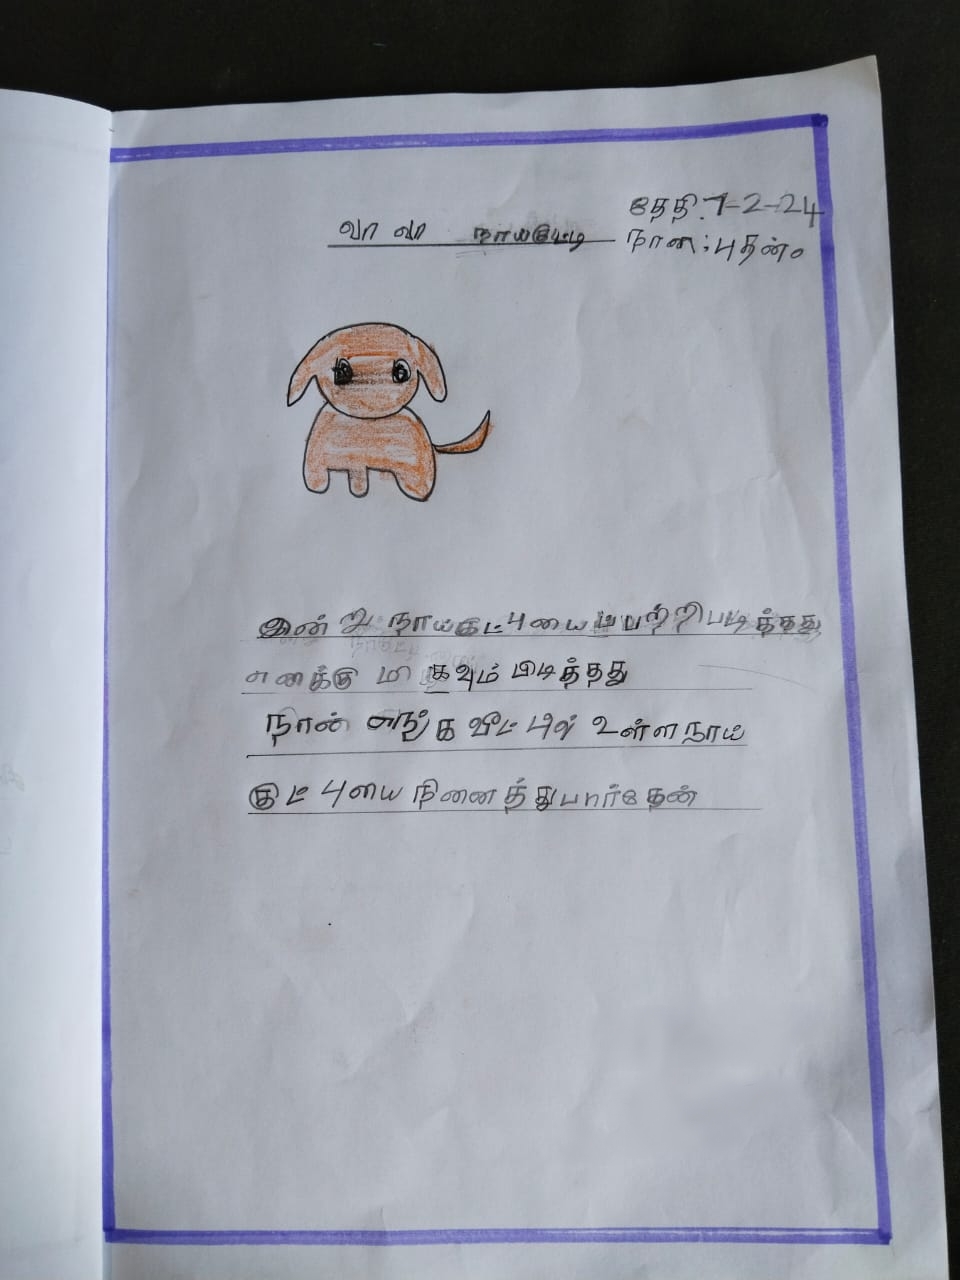 தேதி.7-2-24
வா வா நாய்குட்டி
நாள்; புதன்
இன் று நாய்குட் டியை ப் பற்றி படித்தது
எனக்கு மி கவும் பிடித்தது
நான் எங் க வீட் டில் உள்ள நாய்
குட் டியை நினைத் து பார்தேன்